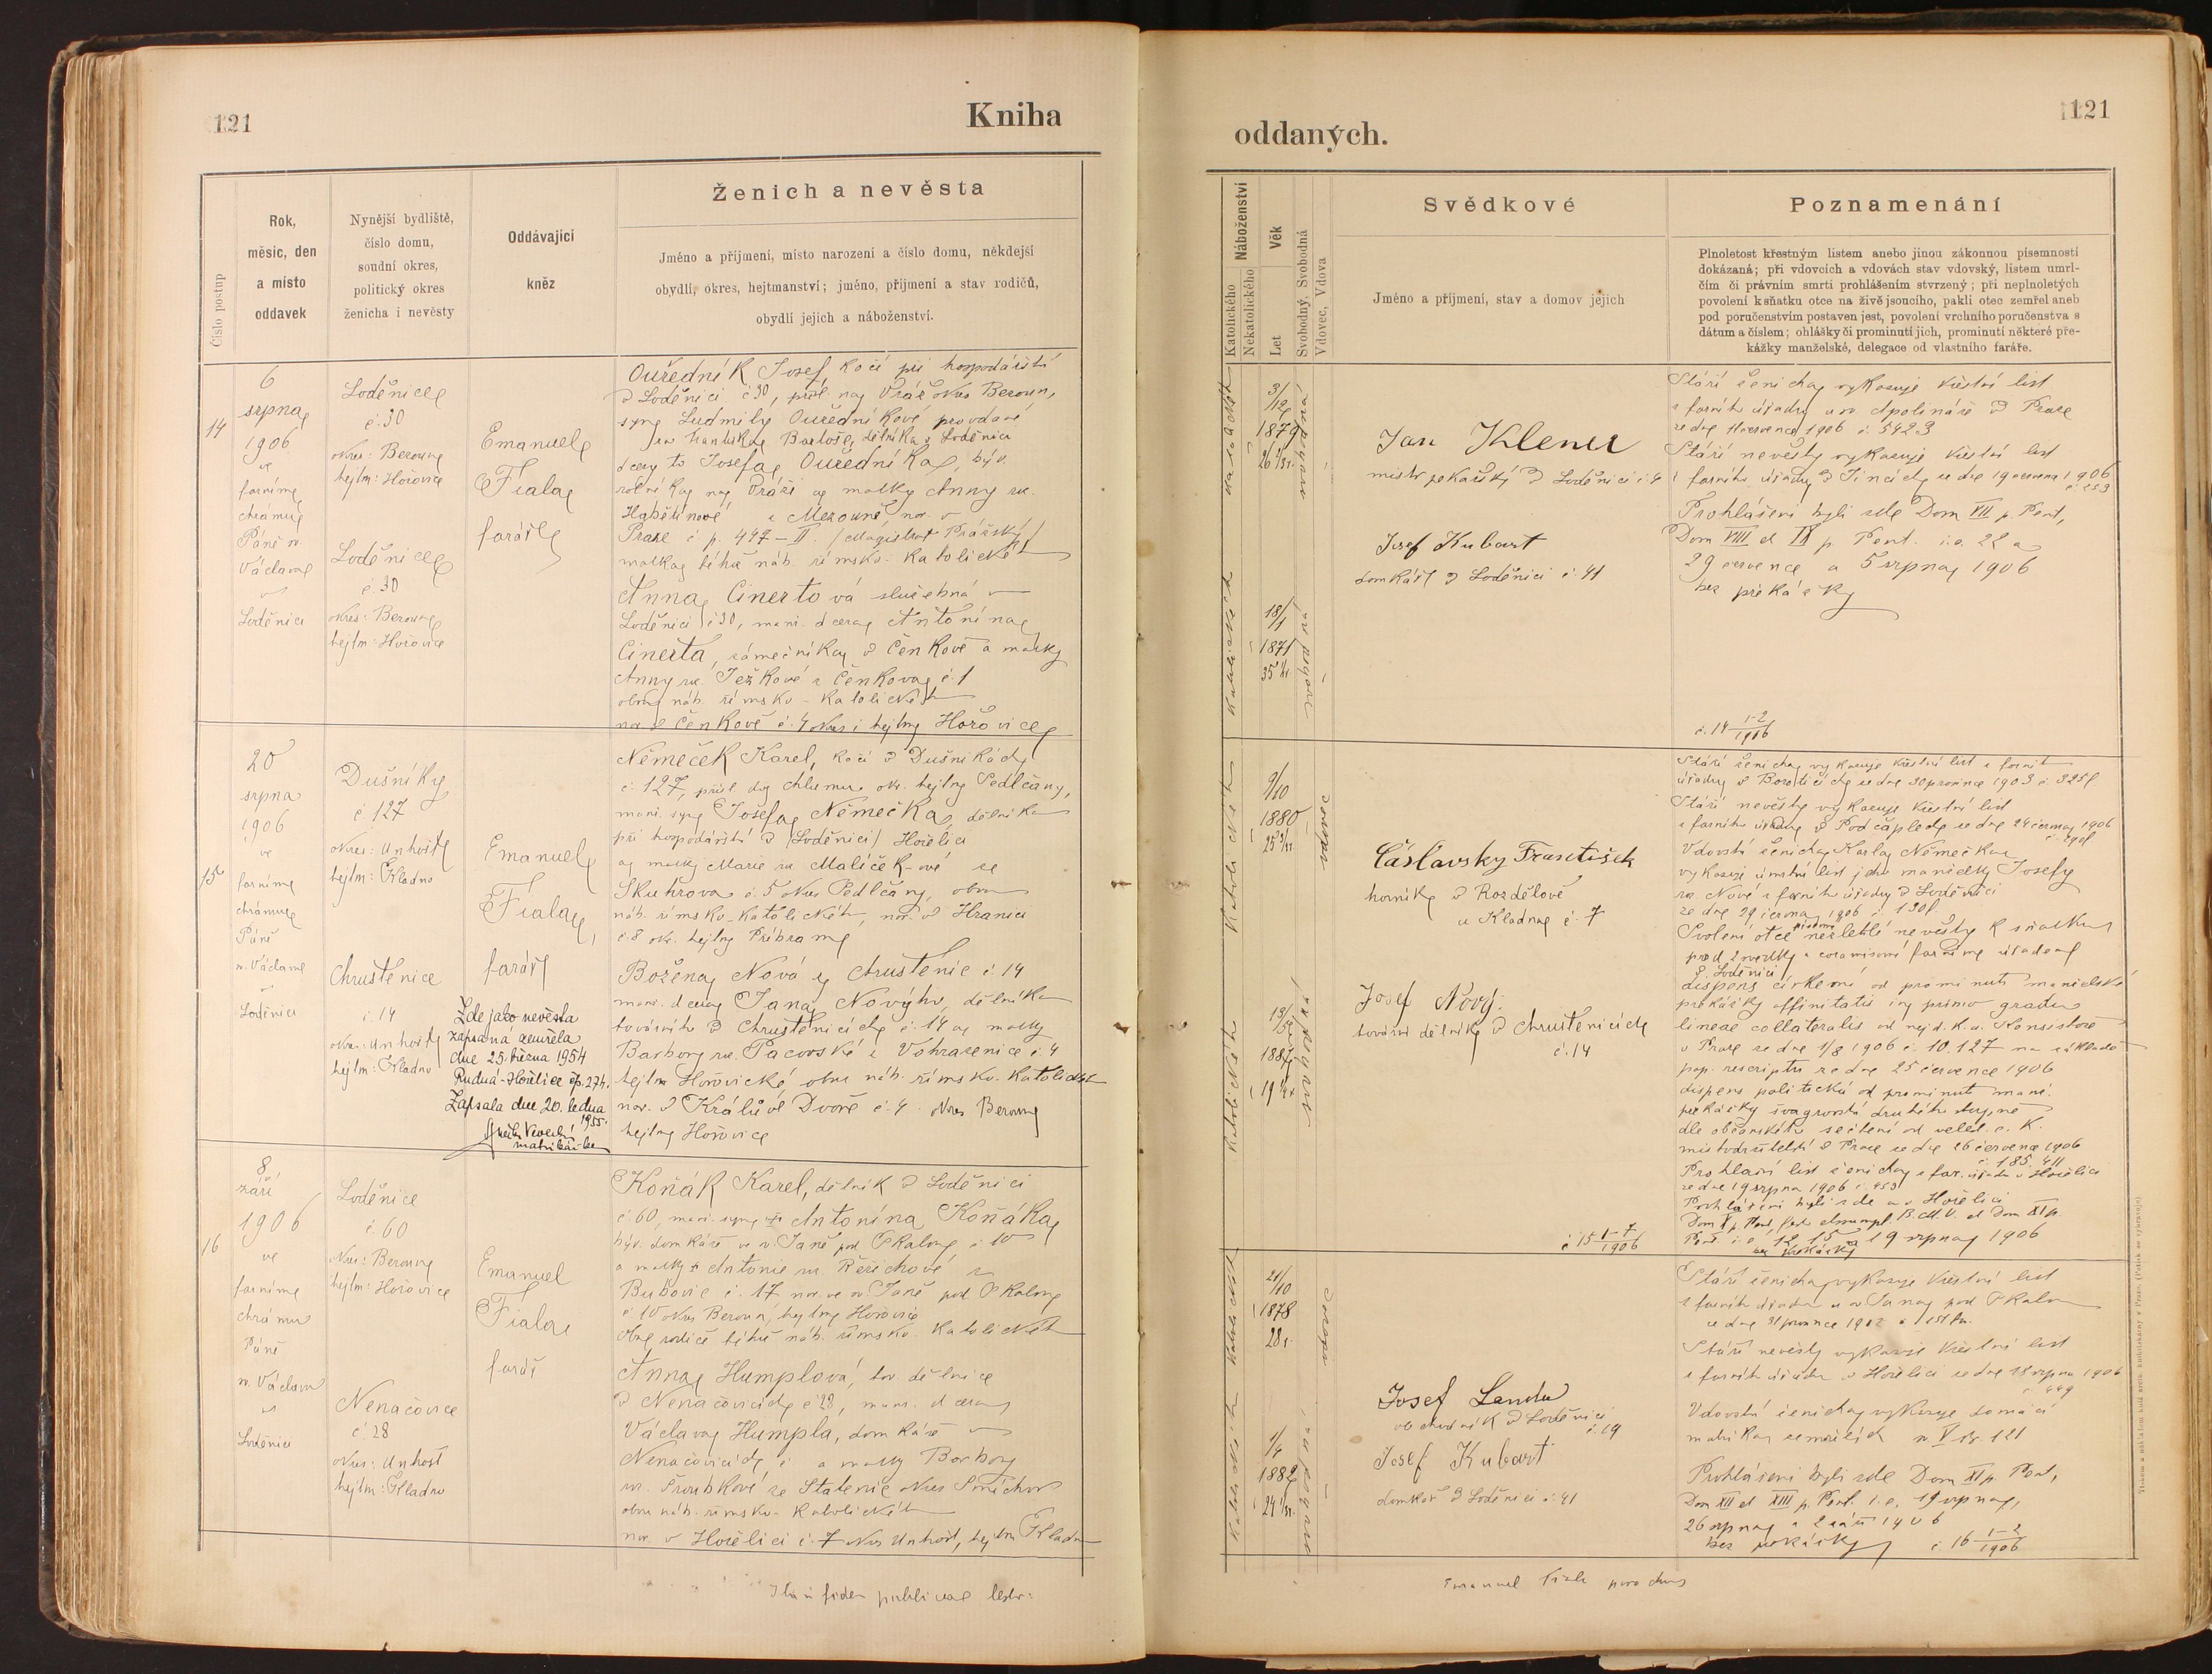 121
Kniha
Číslo postup
Rok,
měsíc, den
a místo
oddavek
Nynější bydliště,
číslo domu,
soudní okres,
politický okres
ženicha i nevěsty
Oddávající
kněz
Ženich a nevěsta
Jméno a příjmení, místo narození a číslo domu, někdejší
obydlí, okres, hejtmanství; jméno, příjmení a stav rodičů,
obydlí jejich a náboženství.
14
6
srpna
1906
ve
farním
chrámu
Páně sv.
Václava
v
Loděnici
Loděnice
č. 30
okres: Beroun
hejtm: Hořovice
Loděnice
č. 30
okres: Beroun
hejtm: Hořovice
Emanuel
Fiala
farář
Ouředník Josef, kočí při hospodářství
v Loděnici č 30, přísl. na Vráž okres Beroun,
syn Ludmily Ouředníkové provdané
za Františka Bartoše, dělníka v Loděnici
dcery to Josefa Ouředníka, býv.
rolníka na Vráži a matky Anny roz.
z Mezouně, nar. v
Praze č p. 497-II. /Magistrát Pražský/
matka téhož náb. římsko-katolického
Anna Cinertová služebná v
Loděnici č 30, manž. dcera Antonína
Cinerta, zámečníka v Čenkově a matky
Anny roz. Ježkové z Čenkova č. 1
obou náb. římsko-katolického
nar. v Čenkově č. 4 okres i hejtm Hořovice
15
20
srpna
1906
ve
farním
chrámu
Páně
sv. Václava
v
Loděnici
Dušníky
č 127
okres: Unhošť
hejtm: Kladno
Chrustenice
č. 14
okres: Unhošť
hejtm: Kladno
Emanuel
Fiala,
farář
Zde jako nevěsta
zapsaná zemřela
dne 25. března 1954
Rudná-Hořelice čp. 274.
Zapsala dne 20. ledna
1955.
matrikářka
Němeček Karel, kočí v Dušníkách
č. 127, přísl. do Chlumu ok. hejtm Sedlčany,
manž. syn Josefa Němečka, dělníka
při hospodářství v /Loděnici/ Hořelici
a matky Marie roz Malíček-ové ze
Skuhrova č. 5 okres Sedlčany, obou
náb. římsko-katolického, nar. v Hranici
č. 8 ok. hejtm Příbram
Božena Nová z Chrustenic č. 14
manž. dcera Jana Nového, dělníka
továrního v Chrustenicích č. 14 a matky
Barbory roz. Pacovské z Vohrazenice č. 4
hejtm Hořovické, obou náb. římsko-katolického
nar. v Králově Dvoře č. 4 okres Beroun
hejtm Hořovice
16
8
září
1906
ve
farním
chrámu
Páně
sv. Václava
v
Loděnici
Loděnice
č 60
okres: Beroun
hejtm: Hořovice
Nenačovice
č. 28
okres: Unhošť
hejtm: Kladno
Emanuel
Fiala
farář
Koňák Karel, dělník v Loděnici
č 60, manž. syn Antonína Koňáka
býv. domkáře ve sv. Janě pod Skalou č. 10
a matky Antonie roz. Řeřichové z
Bubovic č. 17 nar. ve sv. Janě pod Skalou
č 10 okres Beroun, hejtm Hořovice
Oba rodiče téhož náb. římsko-katolického
Anna Humplová, tov. dělnice
v Nenačovicích č 28, manž. dcera
Václava Humpla, domkáře v
Nenačovicích č a matky Barbory
roz. Šroubkové ze Statenic okres Smíchov
obou náb. římsko-katolického
nar. v Hořelici č. 7 okres Unhošť, hejtm Kladno
121
oddaných.
Náboženství
Katolického
Nekatolického
Věk
Let
Svobodný, Svobodná
Vdovec, Vdova
Svědkové
Jméno a příjmení, stav a domov jejich
Poznamenání
Plnoletost křestným listem anebo jinou zákonnou písemností
dokázaná; při vdovcích a vdovách stav vdovský, listem umrl-
čím či právním smrti prohlášením stvrzený; při neplnoletých
povolení k sňatku otce na živě jsoucího, pakli otec zemřel aneb
pod poručenstvím postaven jest, povolení vrchního poručenstva s
dátum a číslem; ohlášky či prominutí jich, prominutí některé pře-
kážky manželské, delegace od vlastního faráře.
katolického
3/12
1879
svobodný
Jan Klener
mistr pekařský v Loděnici č. 4
Josef Kubart
domkář v Loděnici č. 41
katolického
18/1
1871
svobodná
Stáří ženicha vykazuje křestní list
z farního úřadu u sv. Apolináře v Praze
ze dne 11 července 1906 č. 5423
Stáří nevěsty vykazuje křestní list
z farního úřadu v Jincích ze dne 19 června 1906
č. 253
Prohlášeni byli zde Dom VII p. Pent,
Dom VIII et IX p. Pent. i. e. 22 a
29 července a 5 srpna 1906
bez překážky
č. 14 1-2/1906
katolického
9/10
1880
vdovec
Čáslavsky František
horník v Rozdělově
u Kladna č. 7
Josef Nový:
tovární dělník v Chrustenicích
č. 14
katolického
13/5
1887
svobodná
Stáří ženicha vykazuje křestní list z farního
úřadu v Borotících ze dne 30 prosince 1903 č. 325f.
Stáří nevěsty vykazuje křestní list
z farního úřadu v Počaplech ze dne 24 června 1906
Vdovství ženicha Karla Němečka
vykazuje úmrtní list jeho manželky Josefy
roz. Nové z farního úřadu v Loděnici
ze dne 29 června 1906 č. 130f.
Svolení otce nezletilé nevěsty k sňatku
před 2 svědky a farním úřadem
v Loděnici
dispens církevní od prominutí manželské
překážky affinitatis in primo gradu
lineae collateralis od nejd. k. a. Konsistoře
v Praze ze dne 1/8 1906 č. 10.127 na základě
pap. rescriptu ze dne 25 července 1906
dispens politická od prominutí manž.
překážky švagrovství druhého stupně
dle občanského sečtení od veled. c. k.
místodržitelství v Praze ze dne 26 července 1906
č. 185.411
Prohlašní list ženicha z far. úřadu v Hořelici
ze dne 19 srpna 1906 č. 453
Prohlášeni byli zde a v Hořelici
Dom X p. Pent, festo Assumpt. B.M.V. et Dom XI p.
Pent. i. e. 12, 15 a 19 srpna 1906
bez překážky
č 15 1-7/1906
katolického
21/10
1878
28 r.
vdovec
Josef Landa
obchodník v Loděnici
č. 19
Josef Kubart
domkář v Loděnici č. 41
katolického
1/4
1882
svobodná
Stáří ženicha vykazuje křestní list
z farního úřadu u sv. Jana pod Skalou
ze dne 31 prosince 1902
Stáří nevěsty vykazuje křestní list
z farního úřadu v Hořelici ze dne 18 srpna 1906
č. 449
Vdovství ženicha vykazuje domácí
matrika zemřelých sv. V str. 121
Prohlášeni byli zde Dom XI p. Pent,
Dom XII et XIII p. Pent. i. e. 19 srpna,
26 srpna a 2 září 1906
bez překážky
č. 16 1-2/1906
Ita in fidem publicae testor:
Emanuel Fiala parochus